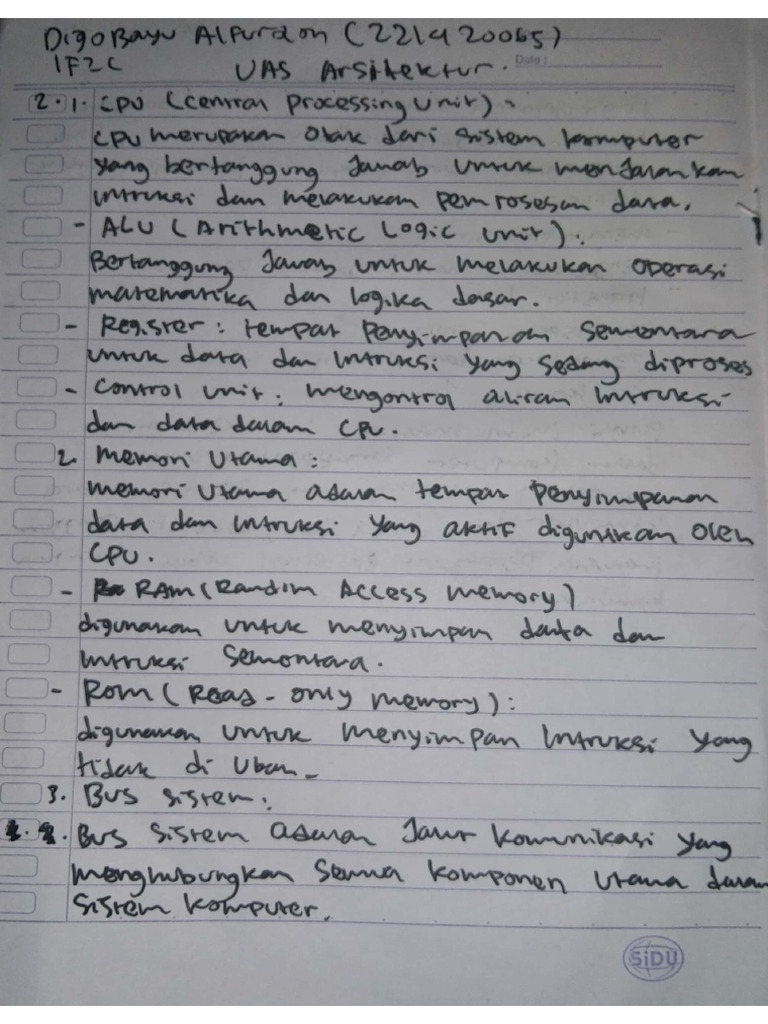 Digo Bayu Alfurdon (221420065)
IF2C UAS Arsitektur. Date:
2. 1. CPU (Central Processing Unit).
CPU merupakan Otak dari sistem komputer
yang bertanggung Jawab untuk menJalankan
intruksi dan melakukan pemrosesan data.
- ALU (Arithmetic Logic Unit):
Bertanggung Jawab untuk melakukan operasi
matematika dan logika dasar.
- Register: tempat penyimpanan sementara
untuk data dan intruksi yang sedang diproses
- Control Unit: mengontrol aliran Intruksi
dan data dalam CPU.
2. Memori Utama:
memori Utama adalah tempat penyimpanan
data dan intruksi yang aktif digunakan oleh
CPU.
- RAM (Random Access Memory)
digunakan untuk menyimpan data dan
intruksi Sementara.
- Rom (Read-only memory):
digunakan untuk menyimpan intruksi yang
tidak di Ubah.
3. Bus sistem:
Bus Sistem adalah Jalur Komunikasi yang
menghubungkan semua komponen utama dalam
sistem komputer.
SiDU